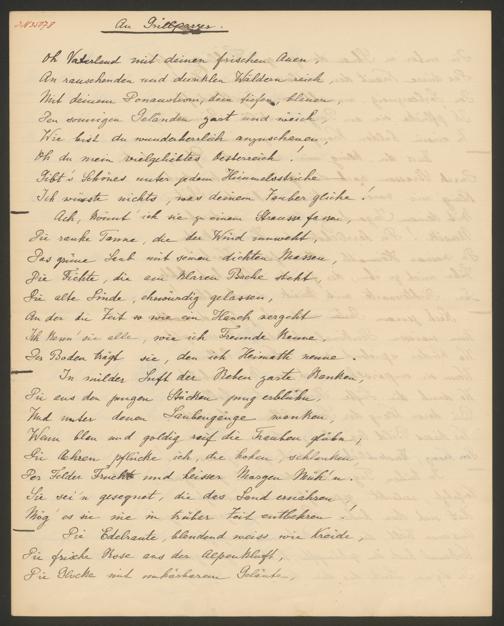 An Grillparzer.
Oh Vaterland mit deinen frischen Auen,
An rauschenden und dunklen Wäldern reich,
Mit deinem Donaustrom, dem tiefen, blauen,
Den sonnigen Geländen zart und weich
Wie bist du wunderherrlich anzuschauen,
Oh du mein vielgeliebtes Oesterreich!
Gibt's Schönes unter jedem Himmelsstriche
Ich wüsste nichts, was deinem Zauber gliche!
Ach, könnt' ich sie zu einem Strausse fassen,
Die ranke Tanne, die der Wind umweht,
Das grüne Laub mit seinen dichten Massen,
Die Fichte, die am klaren Bache steht,
Die alte Linde, ehrwürdig gelassen,
An der die Zeit so wie ein Hauch vergeht
Ich kenn' sie alle, wie ich Freunde kenne,
Der Boden trägt sie, den ich Heimath nenne.
In milder Luft der Reben zarte Ranken,
Die aus den jungen Stöcken jung erblühn,
Und unter denen Laubengänge wanken,
Wenn blau und goldig reif die Trauben glühn,
Die Ähren pflücke ich, die hohen, schlanken
Der Felder Frucht und heisser Morgen Müh'n.
Sie sei'n gesegnet, die das Land ernähren
Mög' es sie nie in trüber Zeit entbehren!
Die Edelraute, blendend weiss wie Kreide,
Die frische Rose aus der Alpenkluft,
Die Glocke mit unhörbarem Geläute,